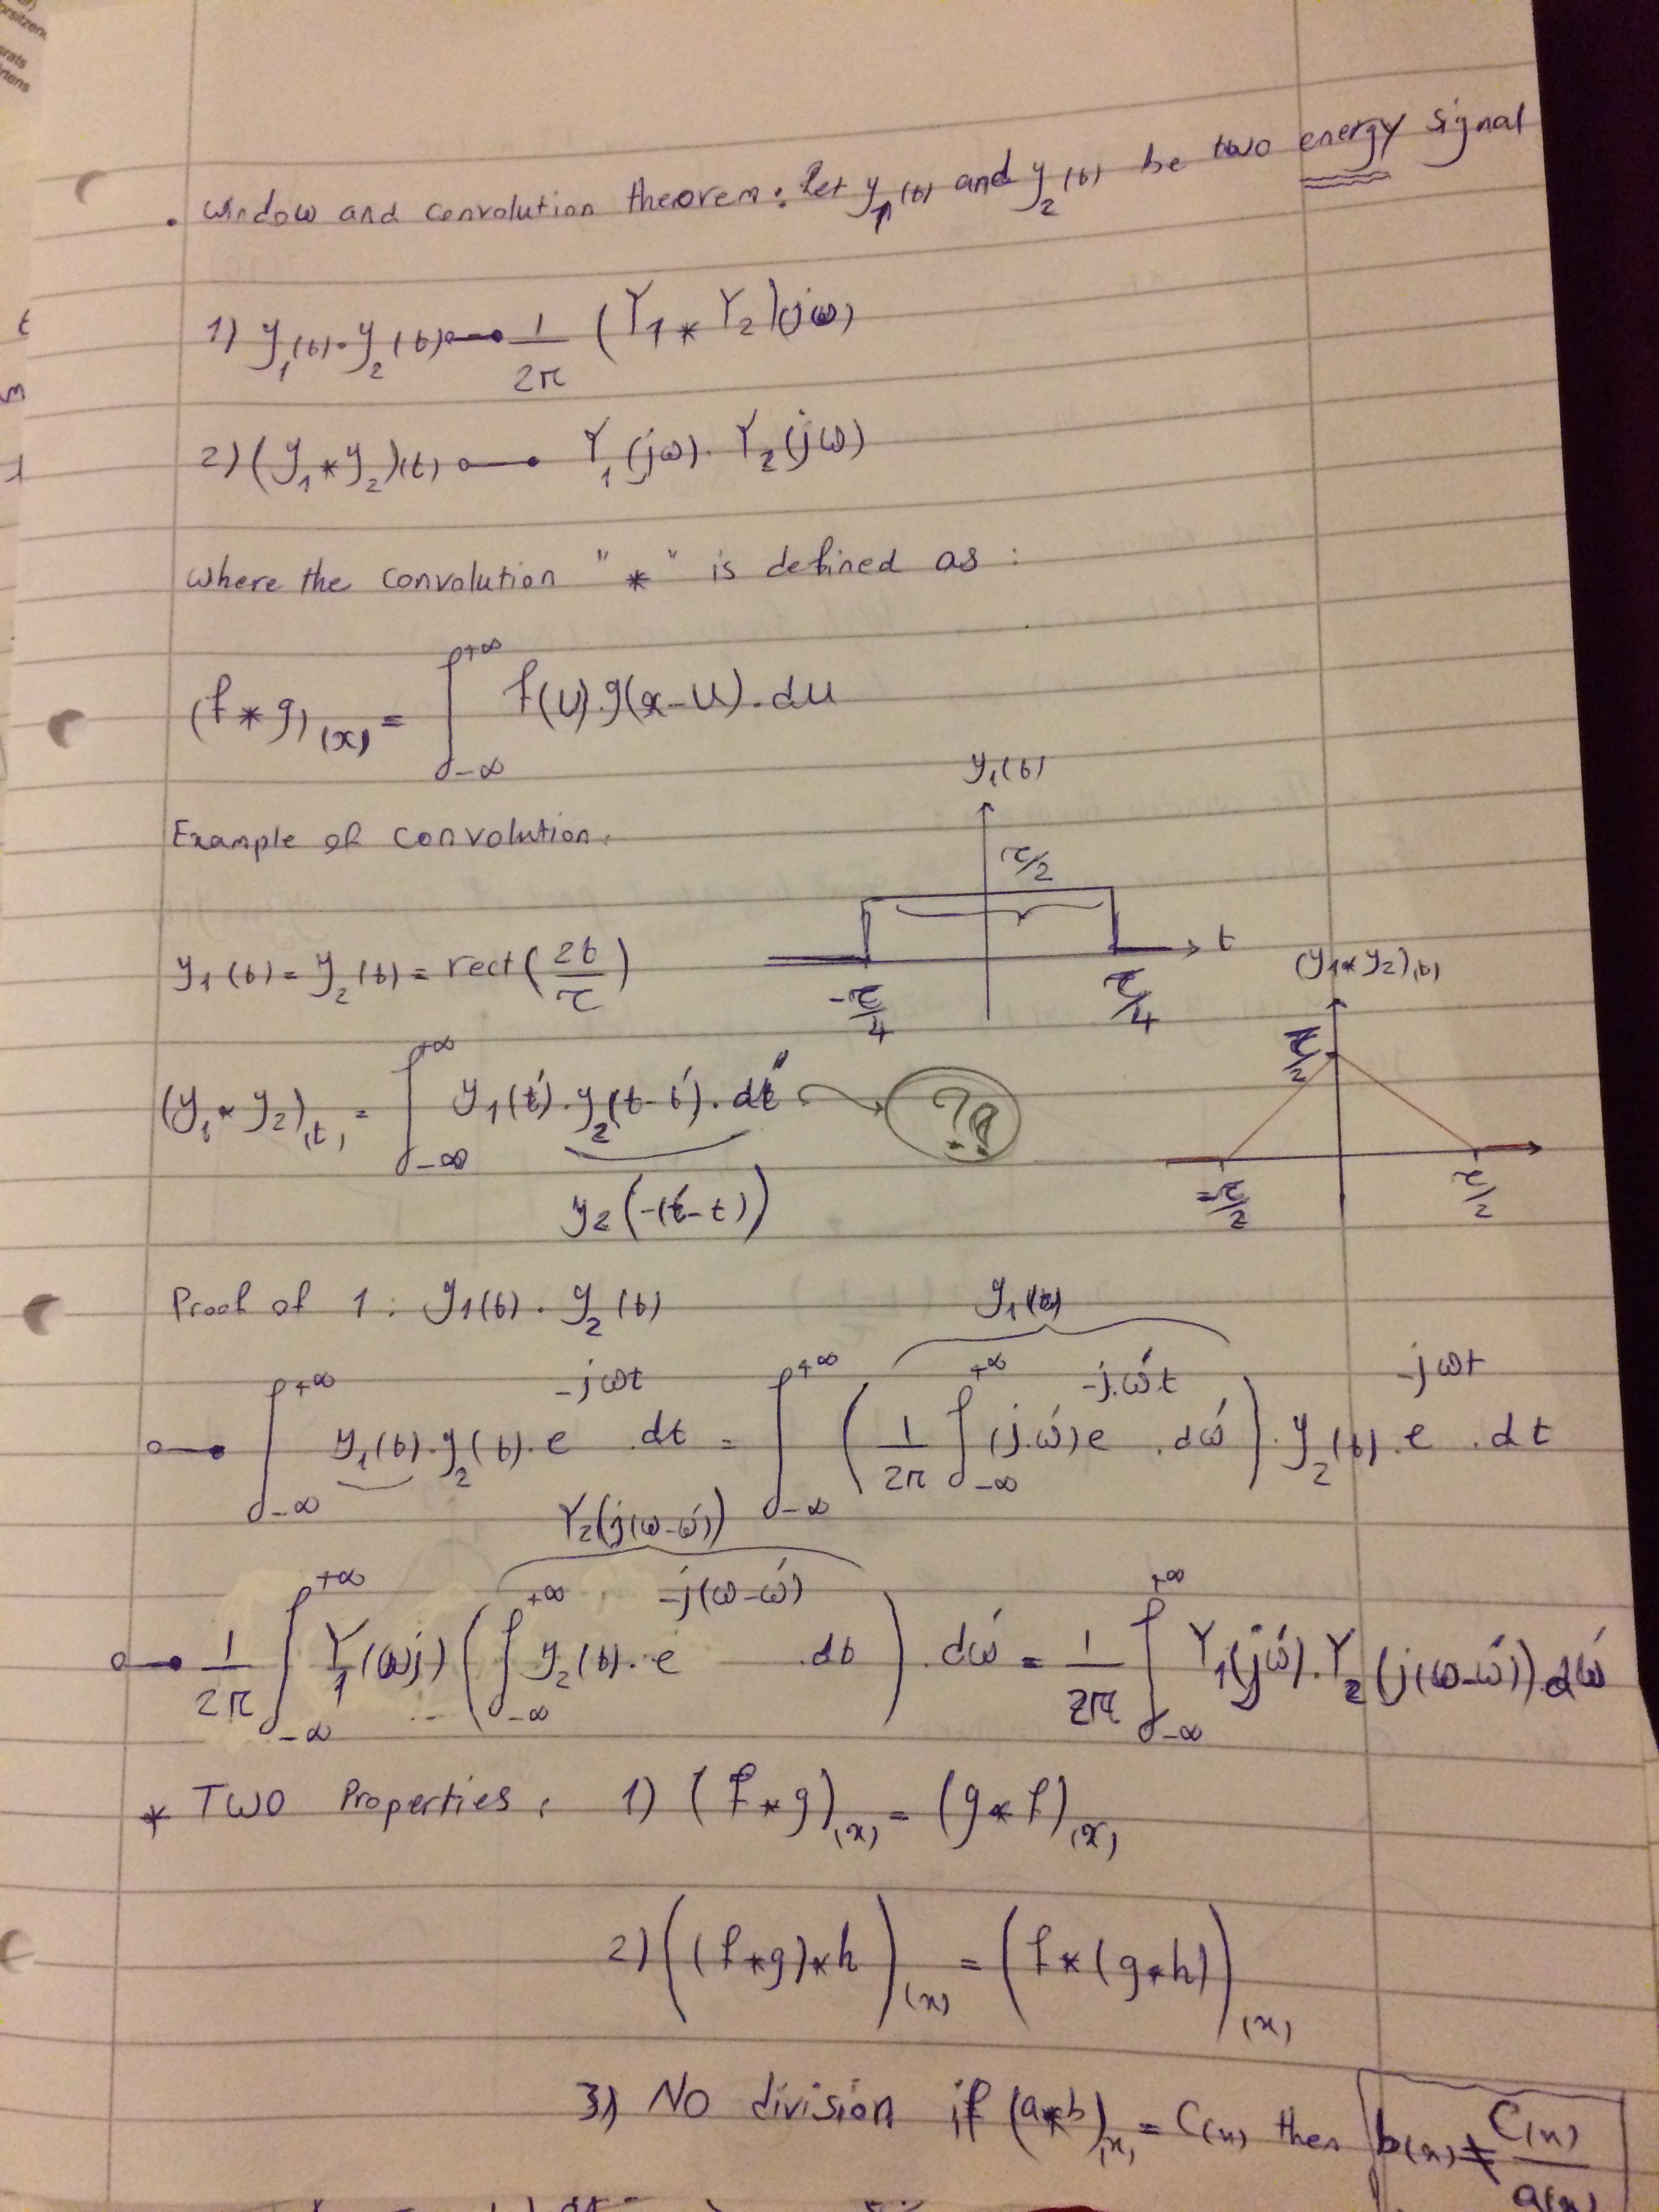 orsitzen
srats
rtens
• window and convolution theorem: let y₁(t) and y₂(t) be two energy signal
1) y₁(t).y₂(t) o—• 1/2π (Y₁ * Y₂)(jω)
2) (y₁ * y₂)(t) o—• Y₁(jω). Y₂(jω)
where the convolution " * " is defined as :
(f * g)(x) = ∫_{-∞}^{+∞} f(u).g(x-u).du
y₁(t)
Example of convolution.
τ/2
y₁(t) = y₂(t) = rect(2t/τ)
t
-τ/4
τ/4
(y₁*y₂)(t)
τ/2
(y₁ * y₂)(t) = ∫_{-∞}^{+∞} y₁(t').y₂(t-t').dt' → ??
-τ/2
τ/2
y₂(-(t'-t))
Proof of 1 : y₁(t) . y₂(t)
y₁(t)
o—• ∫_{-∞}^{+∞} y₁(t).y₂(t).e^{-jωt}.dt = ∫_{-∞}^{+∞} (1/2π ∫_{-∞}^{+∞} (j.ω')e^{-j.ω'.t}.dω').y₂(t).e^{-jωt}.dt
Y₂(j(ω-ω'))
o—• 1/2π ∫_{-∞}^{+∞} Y₁(ωj) (∫_{-∞}^{+∞} y₂(t).e^{-j(ω-ω')}.dt).dω' = 1/2π ∫_{-∞}^{+∞} Y₁(jω').Y₂(j(ω-ω')).dω'
* Two Properties: 1) (f * g)(x) = (g * f)(x)
2) ((f * g) * h)(x) = (f * (g * h))(x)
3) No division if (a*b)(x) = C(x) then b(x) ≠ C(x)/a(x)